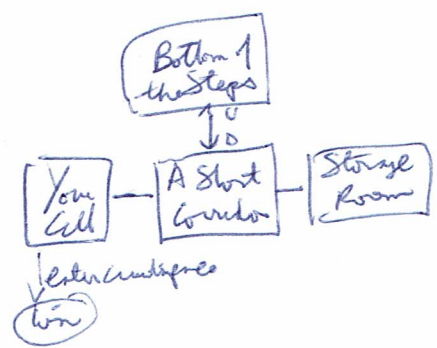 Bottom of
the Steps
U
D
Your
Cell
A Short
Corridor
Storage
Room
enter
win